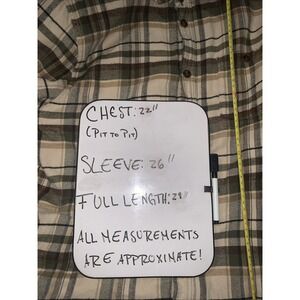 CHEST: 22"
(PIT TO PIT)
SLEEVE: 26"
FULL LENGTH: 29"
ALL MEASUREMENTS
ARE APPROXIMATE!